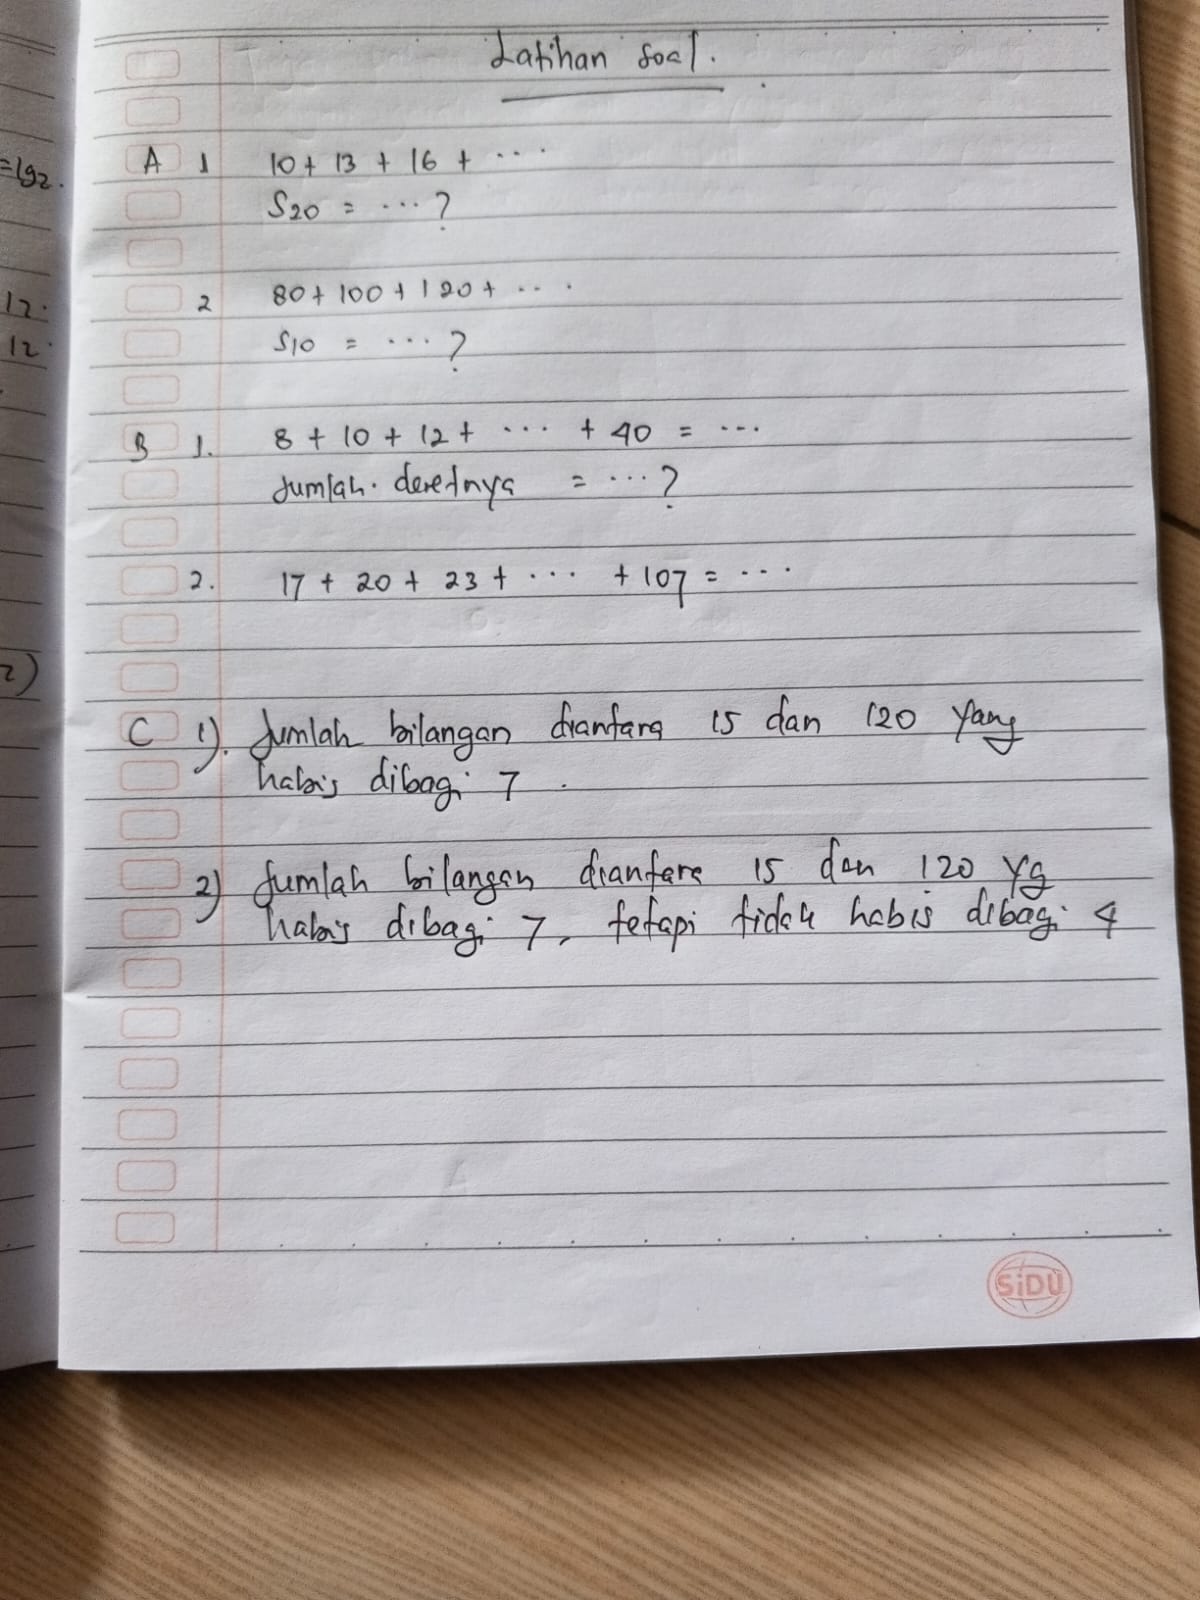 Latihan soal.
=192.
A 1 10 + 13 + 16 + ...
S20 = ... ?
12.
2 80 + 100 + 120 + ...
12
S10 = ... ?
B 1. 8 + 10 + 12 + ... + 40 = ...
Jumlah deretnya = ... ?
2. 17 + 20 + 23 + ... + 107 = ...
2)
C 1). Jumlah bilangan diantara 15 dan 120 yang
habis dibagi 7.
2) Jumlah bilangan diantara 15 dan 120 yg
habis dibagi 7, tetapi tidak habis dibagi 4
SiDU